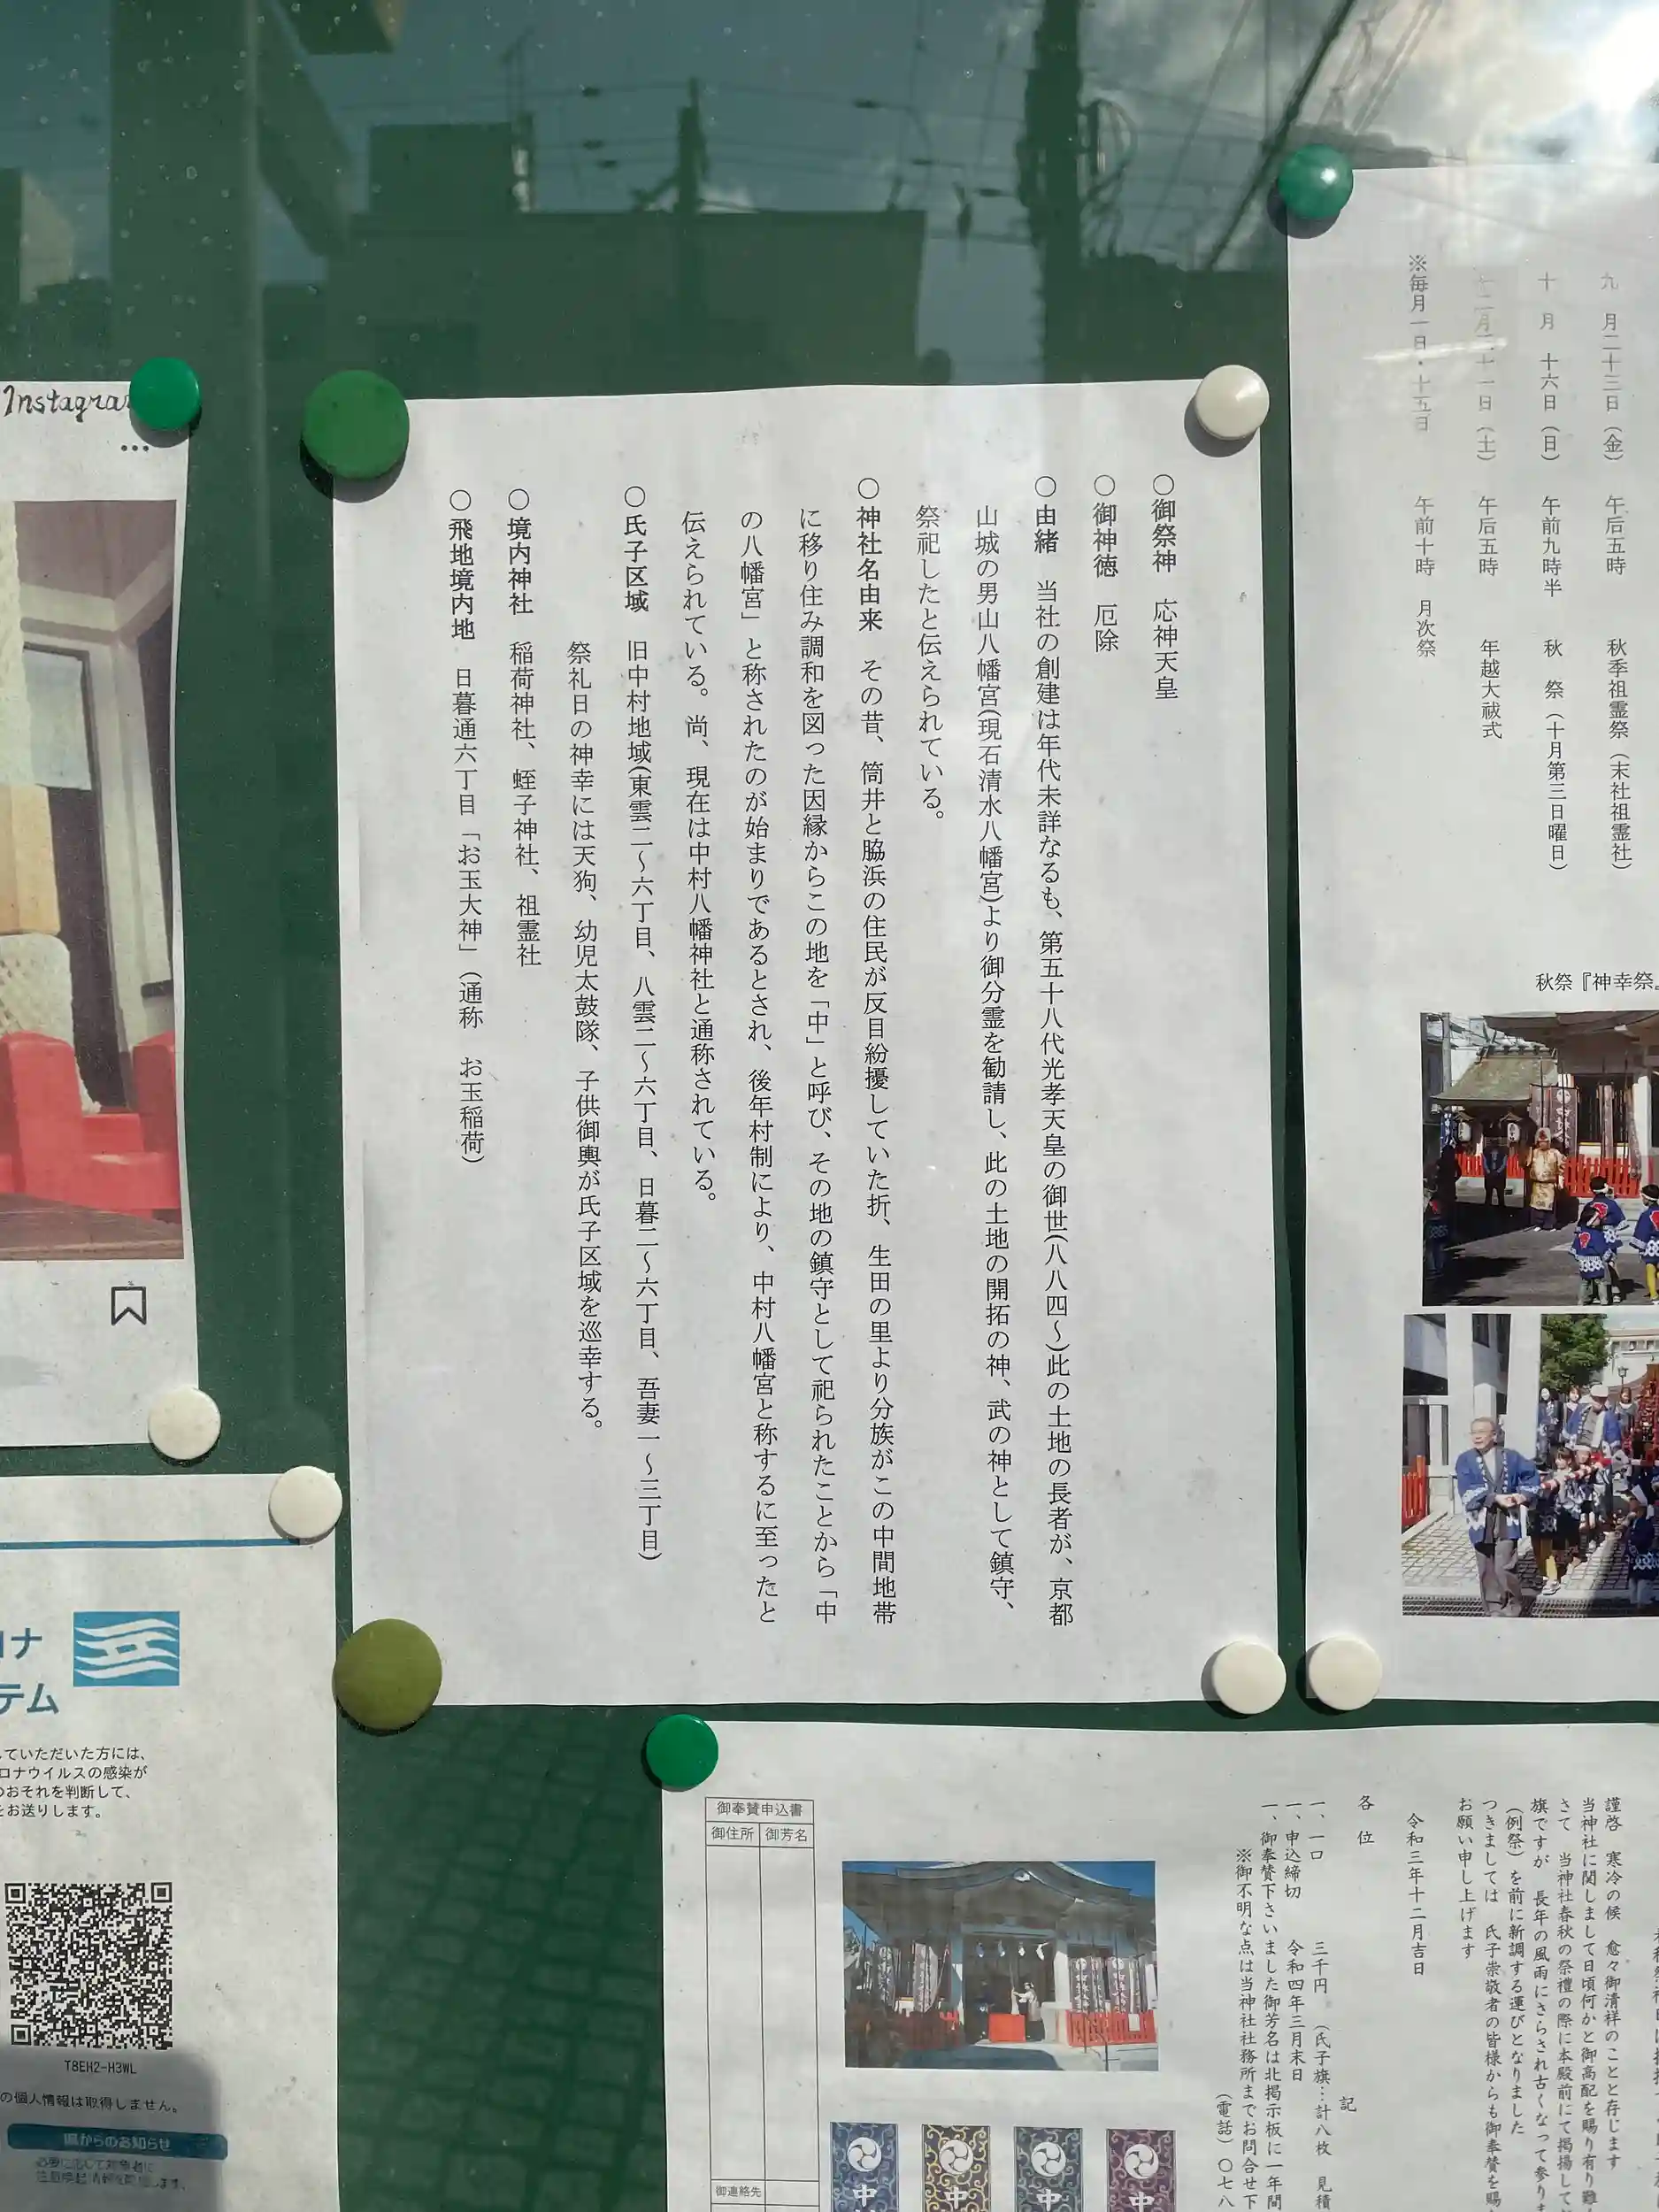 ○御祭神　応神天皇
○御神徳　厄除
○由緒　当社の創建は年代未詳なるも、第五十八代光孝天皇の御世(八八四～)此の土地の長者が、京都
山城の男山八幡宮(現石清水八幡宮)より御分霊を勧請し、此の土地の開拓の神、武の神として鎮守、
祭祀したと伝えられている。
○神社名由来　その昔、筒井と脇浜の住民が反目紛擾していた折、生田の里より分族がこの中間地帯
に移り住み調和を図った因縁からこの地を「中」と呼び、その地の鎮守として祀られたことから「中
の八幡宮」と称されたのが始まりであるとされ、後年村制により、中村八幡宮と称するに至ったと
伝えられている。尚、現在は中村八幡神社と通称されている。
○氏子区域　旧中村地域(東雲二～六丁目、八雲二～六丁目、日暮二～六丁目、吾妻一～三丁目)
祭礼日の神幸には天狗、幼児太鼓隊、子供御輿が氏子区域を巡幸する。
○境内神社　稲荷神社、蛭子神社、祖霊社
○飛地境内地　日暮通六丁目「お玉大神」(通称　お玉稲荷)
九　月二十三日（金）　午后五時　秋季祖霊祭（末社祖霊社）
十　月　十六日（日）　午前九時半　秋　祭（十月第三日曜日）
十二月三十一日（土）　午后五時　年越大祓式
※毎月一日・十五日　午前十時　月次祭
秋祭『神幸祭』
Instagra
…
コナ
テム
していただいた方には、
ロナウイルスの感染が
のおそれを判断して、
をお送りします。
T8EH2-H3WL
の個人情報は取得しません。
県からのお知らせ
謹啓　寒冷の候　愈々御清祥のことと存じます
当神社に関しまして日頃何かと御高配を賜り有り難
さて　当神社春秋の祭禮の際に本殿前にて掲揚して
旗ですが　長年の風雨にさらされ古くなって参りま
（例祭）を前に新調する運びとなりました
つきましては　氏子崇敬者の皆様からも御奉賛を賜
お願い申し上げます
令和三年十二月吉日
各　位
記
一、一口　三千円　（氏子旗…計八枚　見積
一、申込締切　令和四年三月末日
一、御奉賛下さいました御芳名は北掲示板に一年間
※御不明な点は当神社社務所までお問合せ下
（電話）〇七八
御奉賛申込書
御住所　御芳名
御連絡先
中
中
中
中